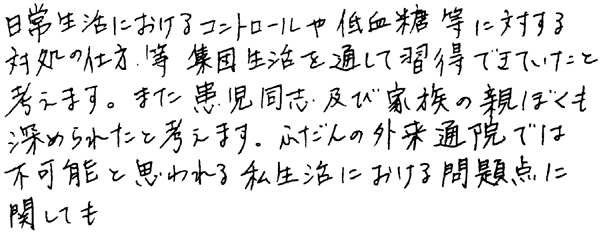 日常生活におけるコントロールや低血糖等に対する
対処の仕方、等 集団生活を通して習得できていたと
考えます。また患児同志及び家族の親ぼくも
深められたと考えます。ふだんの外来通院では
不可能と思われる私生活における問題点に
関しても